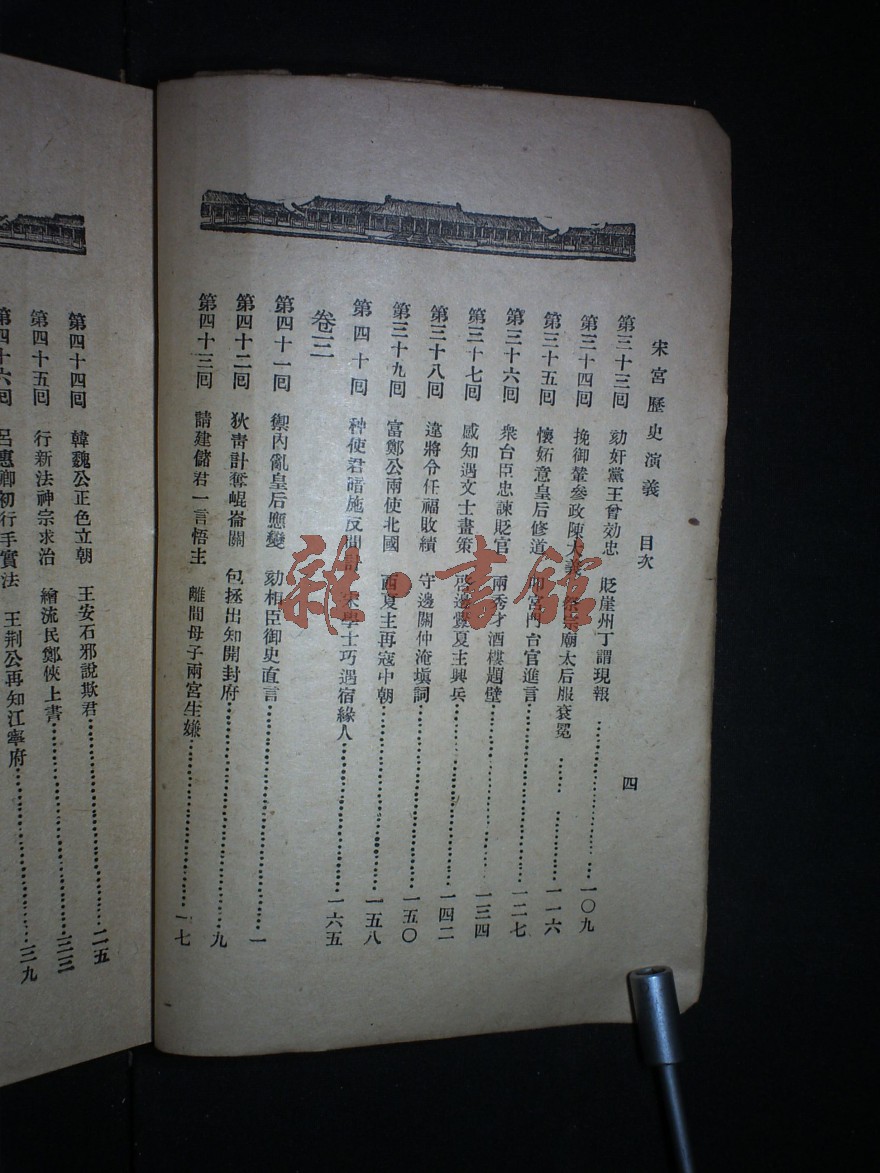 宋宮歷史演義 目次 四
第三十三回 劾奸黨王曾効忠 貶崖州丁謂現報 一〇九
第三十四回 挽御輦參政陳大義 祭宗廟太后服袞冕 一一六
第三十五回 懷妬意皇后修道 叩宮門台官進言 一二七
第三十六回 衆台臣忠諫貶官 兩秀才酒樓題壁 一三四
第三十七回 感知遇文士畫策 啓邊釁夏主興兵 一四二
第三十八回 違將令任福敗績 守邊關仲淹塡詞 一五〇
第三十九回 富鄭公兩使北國 西夏主再寇中朝 一五八
第四十回 种使君暗施反間計 宋學士巧遇宿緣人 一六五
卷三
第四十一回 禦內亂皇后應變 劾相臣御史直言 一
第四十二回 狄靑計奪崐崙關 包拯出知開封府 九
第四十三回 請建儲君一言悟主 離間母子兩宮生嫌 一七
第四十四回 韓魏公正色立朝 王安石邪說欺君 二五
第四十五回 行新法神宗求治 繪流民鄭俠上書 三三
第四十六回 呂惠卿初行手實法 王荆公再知江寧府 三九
雜·書館